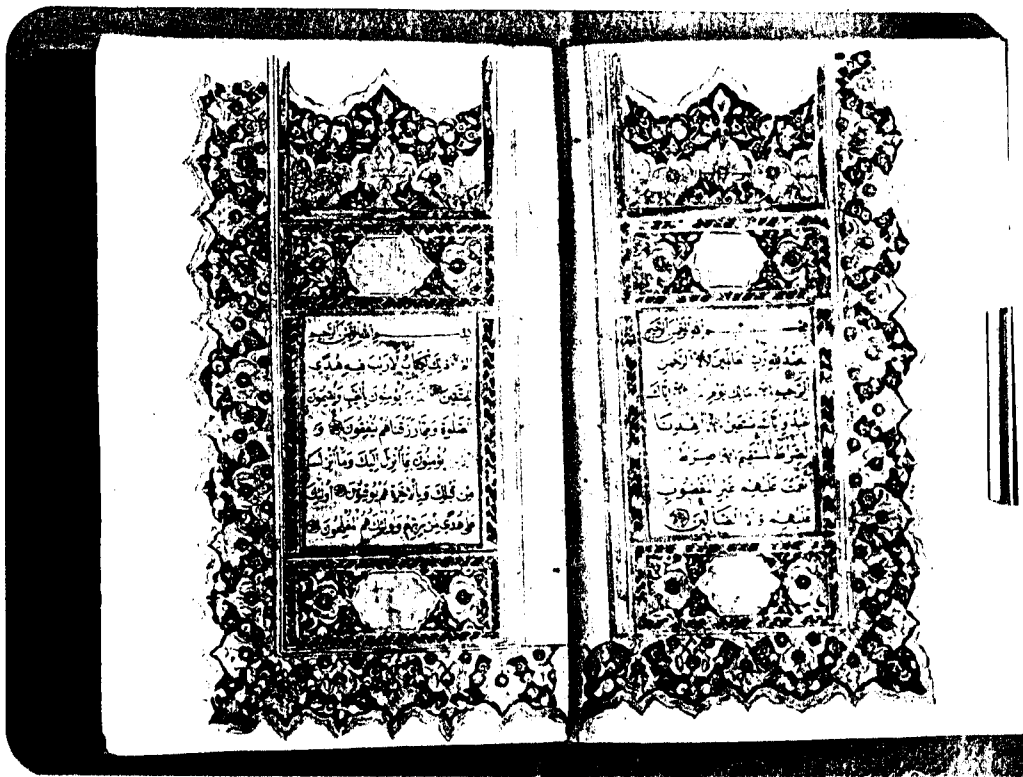 الرحمن الرحيم
الحمد لله رب العالمين الرحمن
الرحيم مالك يوم إياك
نعبد وإياك نستعين إهدنا
الصراط المستقيم صراط
أنعمت عليهم غير المغضوب
عليهم ولا الضالين
الرحمن الرحيم
الم ذلك الكتاب لا ريب فيه هدى
للمتقين يؤمنون بالغيب ويقيمون
الصلوة ومما رزقناهم ينفقون و
يؤمنون بما أنزل إليك وما أنزل
من قبلك وبالآخرة هم يوقنون أولئك
على هدى من ربهم وأولئك هم المفلحون